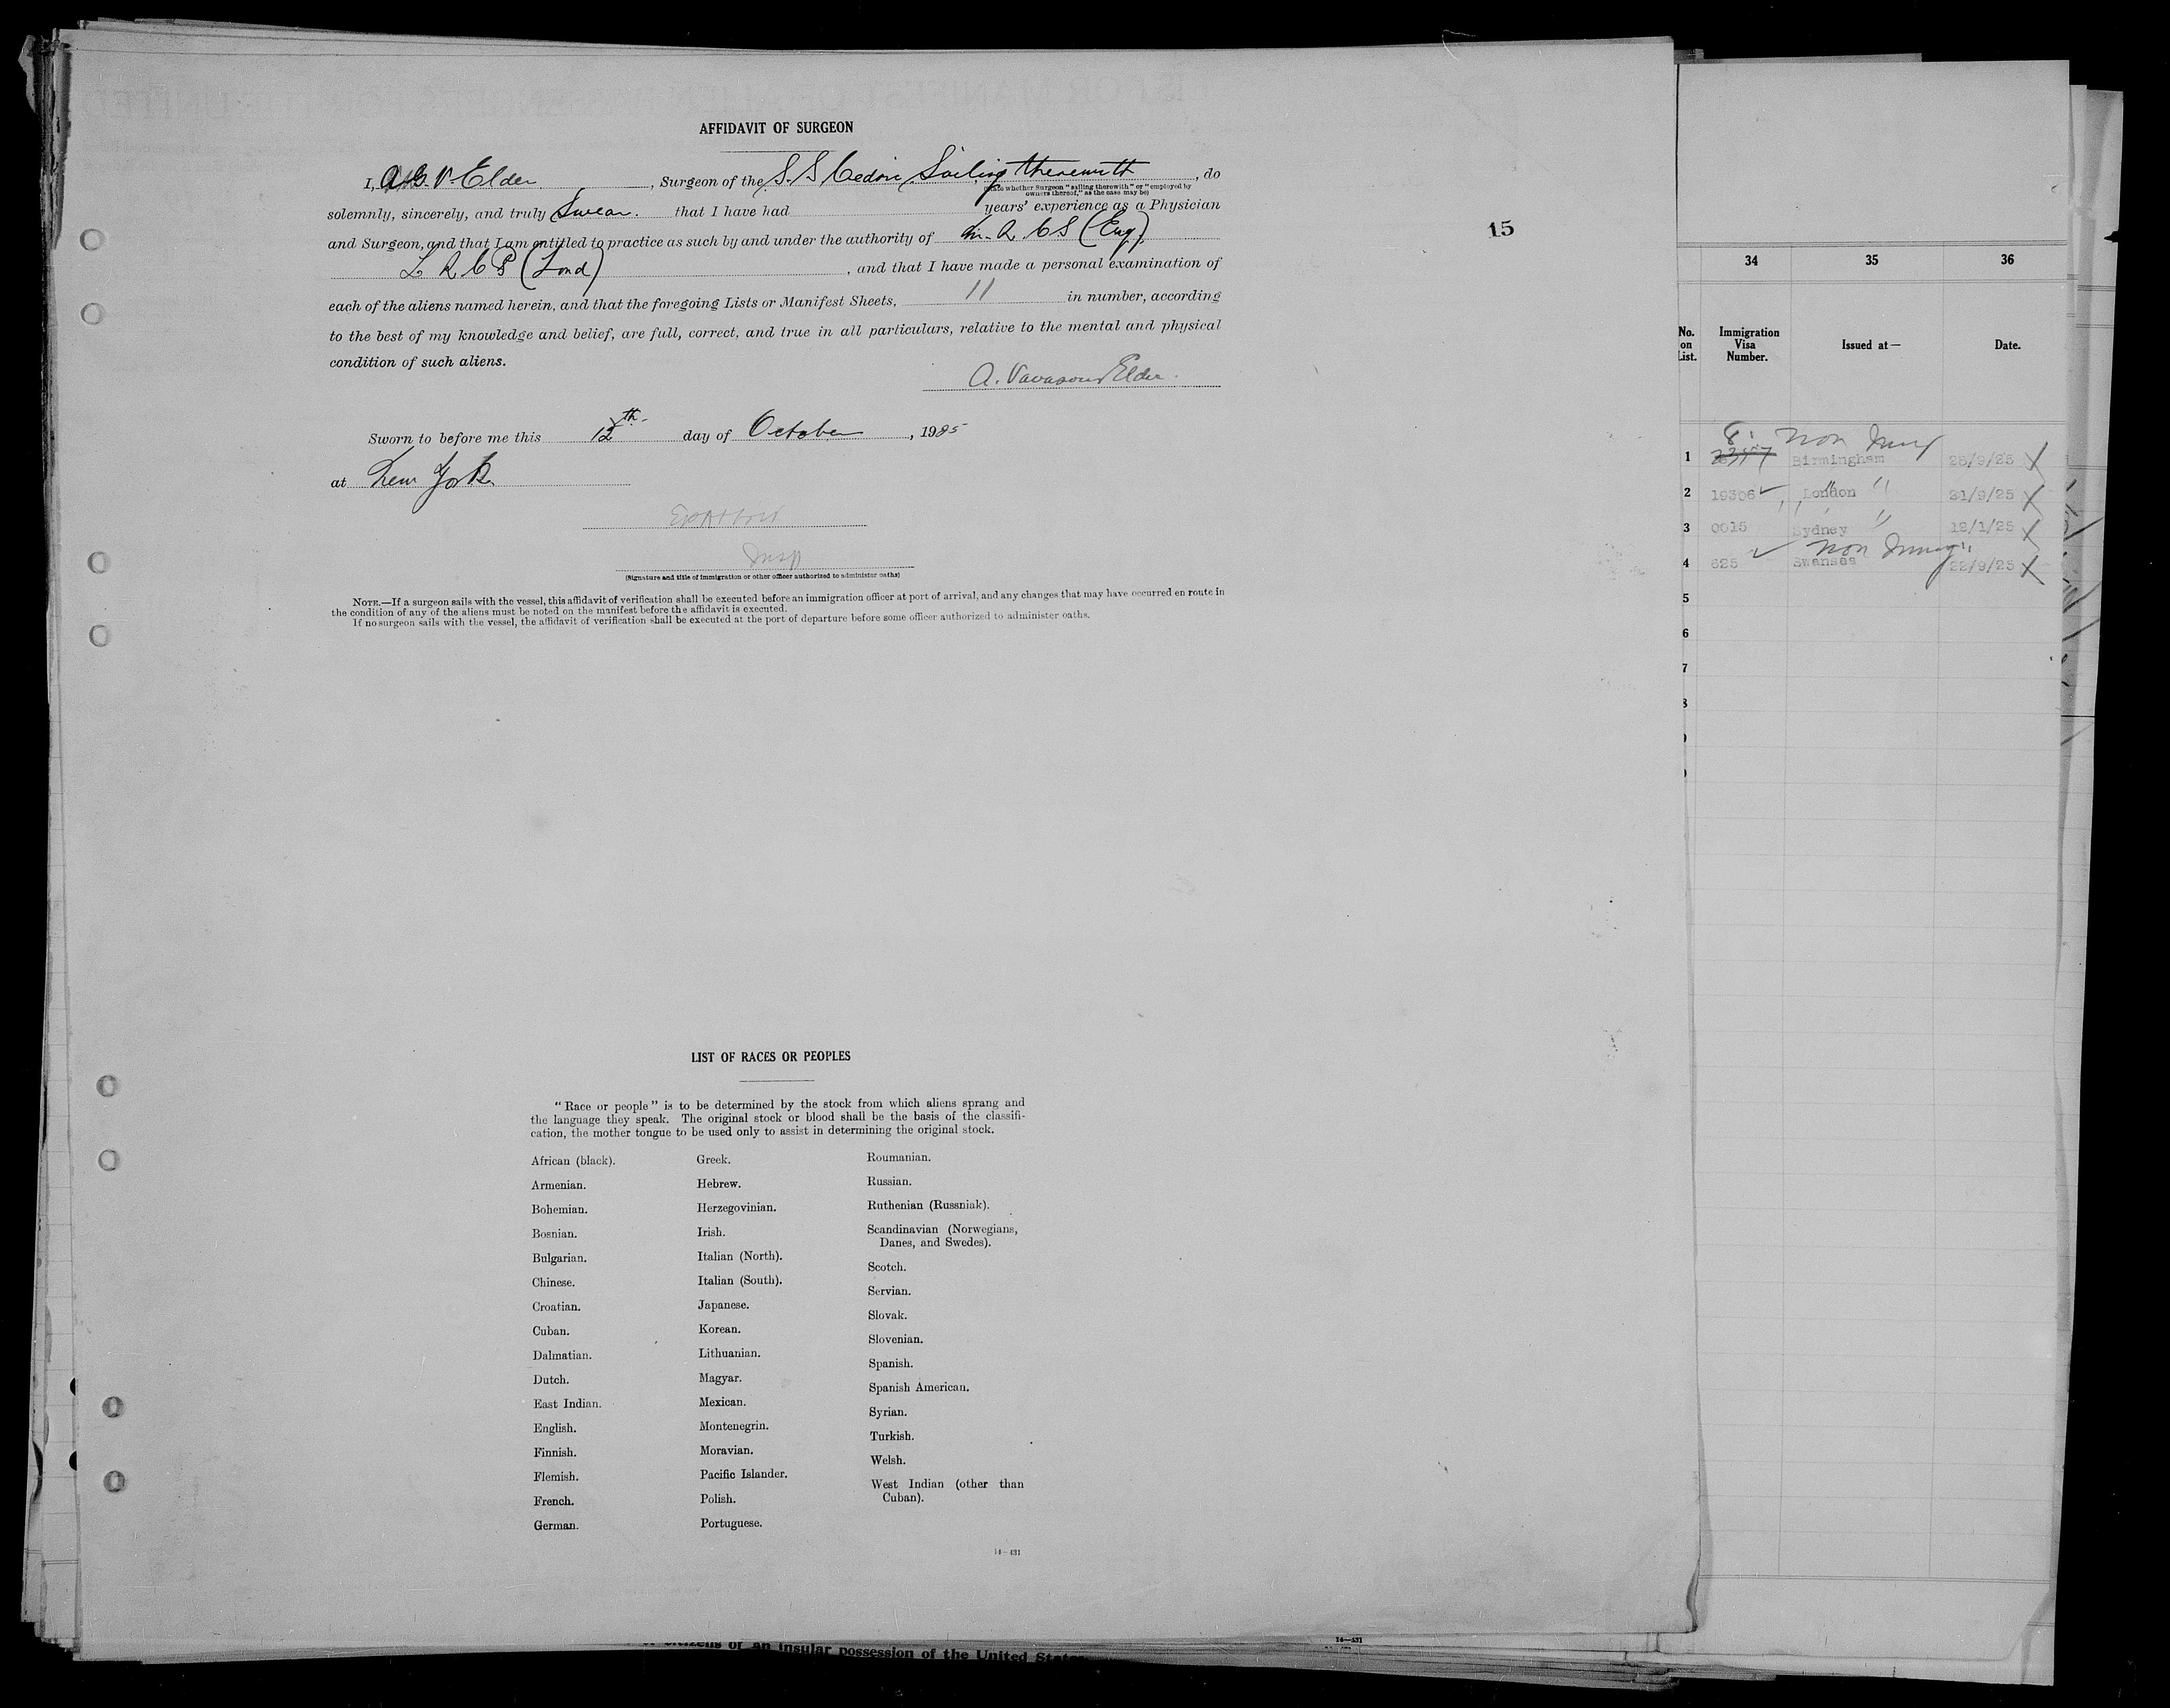 AFFIDAVIT OF SURGEON
I, A. G. V. Elder, Surgeon of the S. S Cedric, Sailing therewith, do
(State whether Surgeon "sailing therewith" or "employed by
owners thereof," as the case may be)
solemnly, sincerely, and truly Swear. that I have had years' experience as a Physician
and Surgeon, and that I am entitled to practice as such by and under the authority of M. R. C S (Eng)
L R C P (Lond), and that I have made a personal examination of
each of the aliens named herein, and that the foregoing Lists or Manifest Sheets, 11 in number, according
to the best of my knowledge and belief, are full, correct, and true in all particulars, relative to the mental and physical
condition of such aliens.
A. Vavasour Elder.
Sworn to before me this 12th day of October, 1925
at New York
Insp
(Signature and title of immigration or other officer authorized to administer oaths)
NOTE.—If a surgeon sails with the vessel, this affidavit of verification shall be executed before an immigration officer at port of arrival, and any changes that may have occurred en route in
the condition of any of the aliens must be noted on the manifest before the affidavit is executed.
If no surgeon sails with the vessel, the affidavit of verification shall be executed at the port of departure before some officer authorized to administer oaths.
15
LIST OF RACES OR PEOPLES
"Race or people" is to be determined by the stock from which aliens sprang and
the language they speak. The original stock or blood shall be the basis of the classifi-
cation, the mother tongue to be used only to assist in determining the original stock.
African (black).
Armenian.
Bohemian.
Bosnian.
Bulgarian.
Chinese.
Croatian.
Cuban.
Dalmatian.
Dutch.
East Indian.
English.
Finnish.
Flemish.
French.
German.
Greek.
Hebrew.
Herzegovinian.
Irish.
Italian (North).
Italian (South).
Japanese.
Korean.
Lithuanian.
Magyar.
Mexican.
Montenegrin.
Moravian.
Pacific Islander.
Polish.
Portuguese.
Roumanian.
Russian.
Ruthenian (Russniak).
Scandinavian (Norwegians,
Danes, and Swedes).
Scotch.
Servian.
Slovak.
Slovenian.
Spanish.
Spanish American.
Syrian.
Turkish.
Welsh.
West Indian (other than
Cuban).
14—431
34 35 36
No. on List. Immigration Visa Number. Issued at— Date.
Non Immig
1 Birmingham 25/9/25
2 19306 London " 21/9/25
3 0015 Sydney " 12/1/25
Non Immig
4 625 Swansea 22/9/25
5
6
7
8
citizens of an insular possession of the United States
14—431